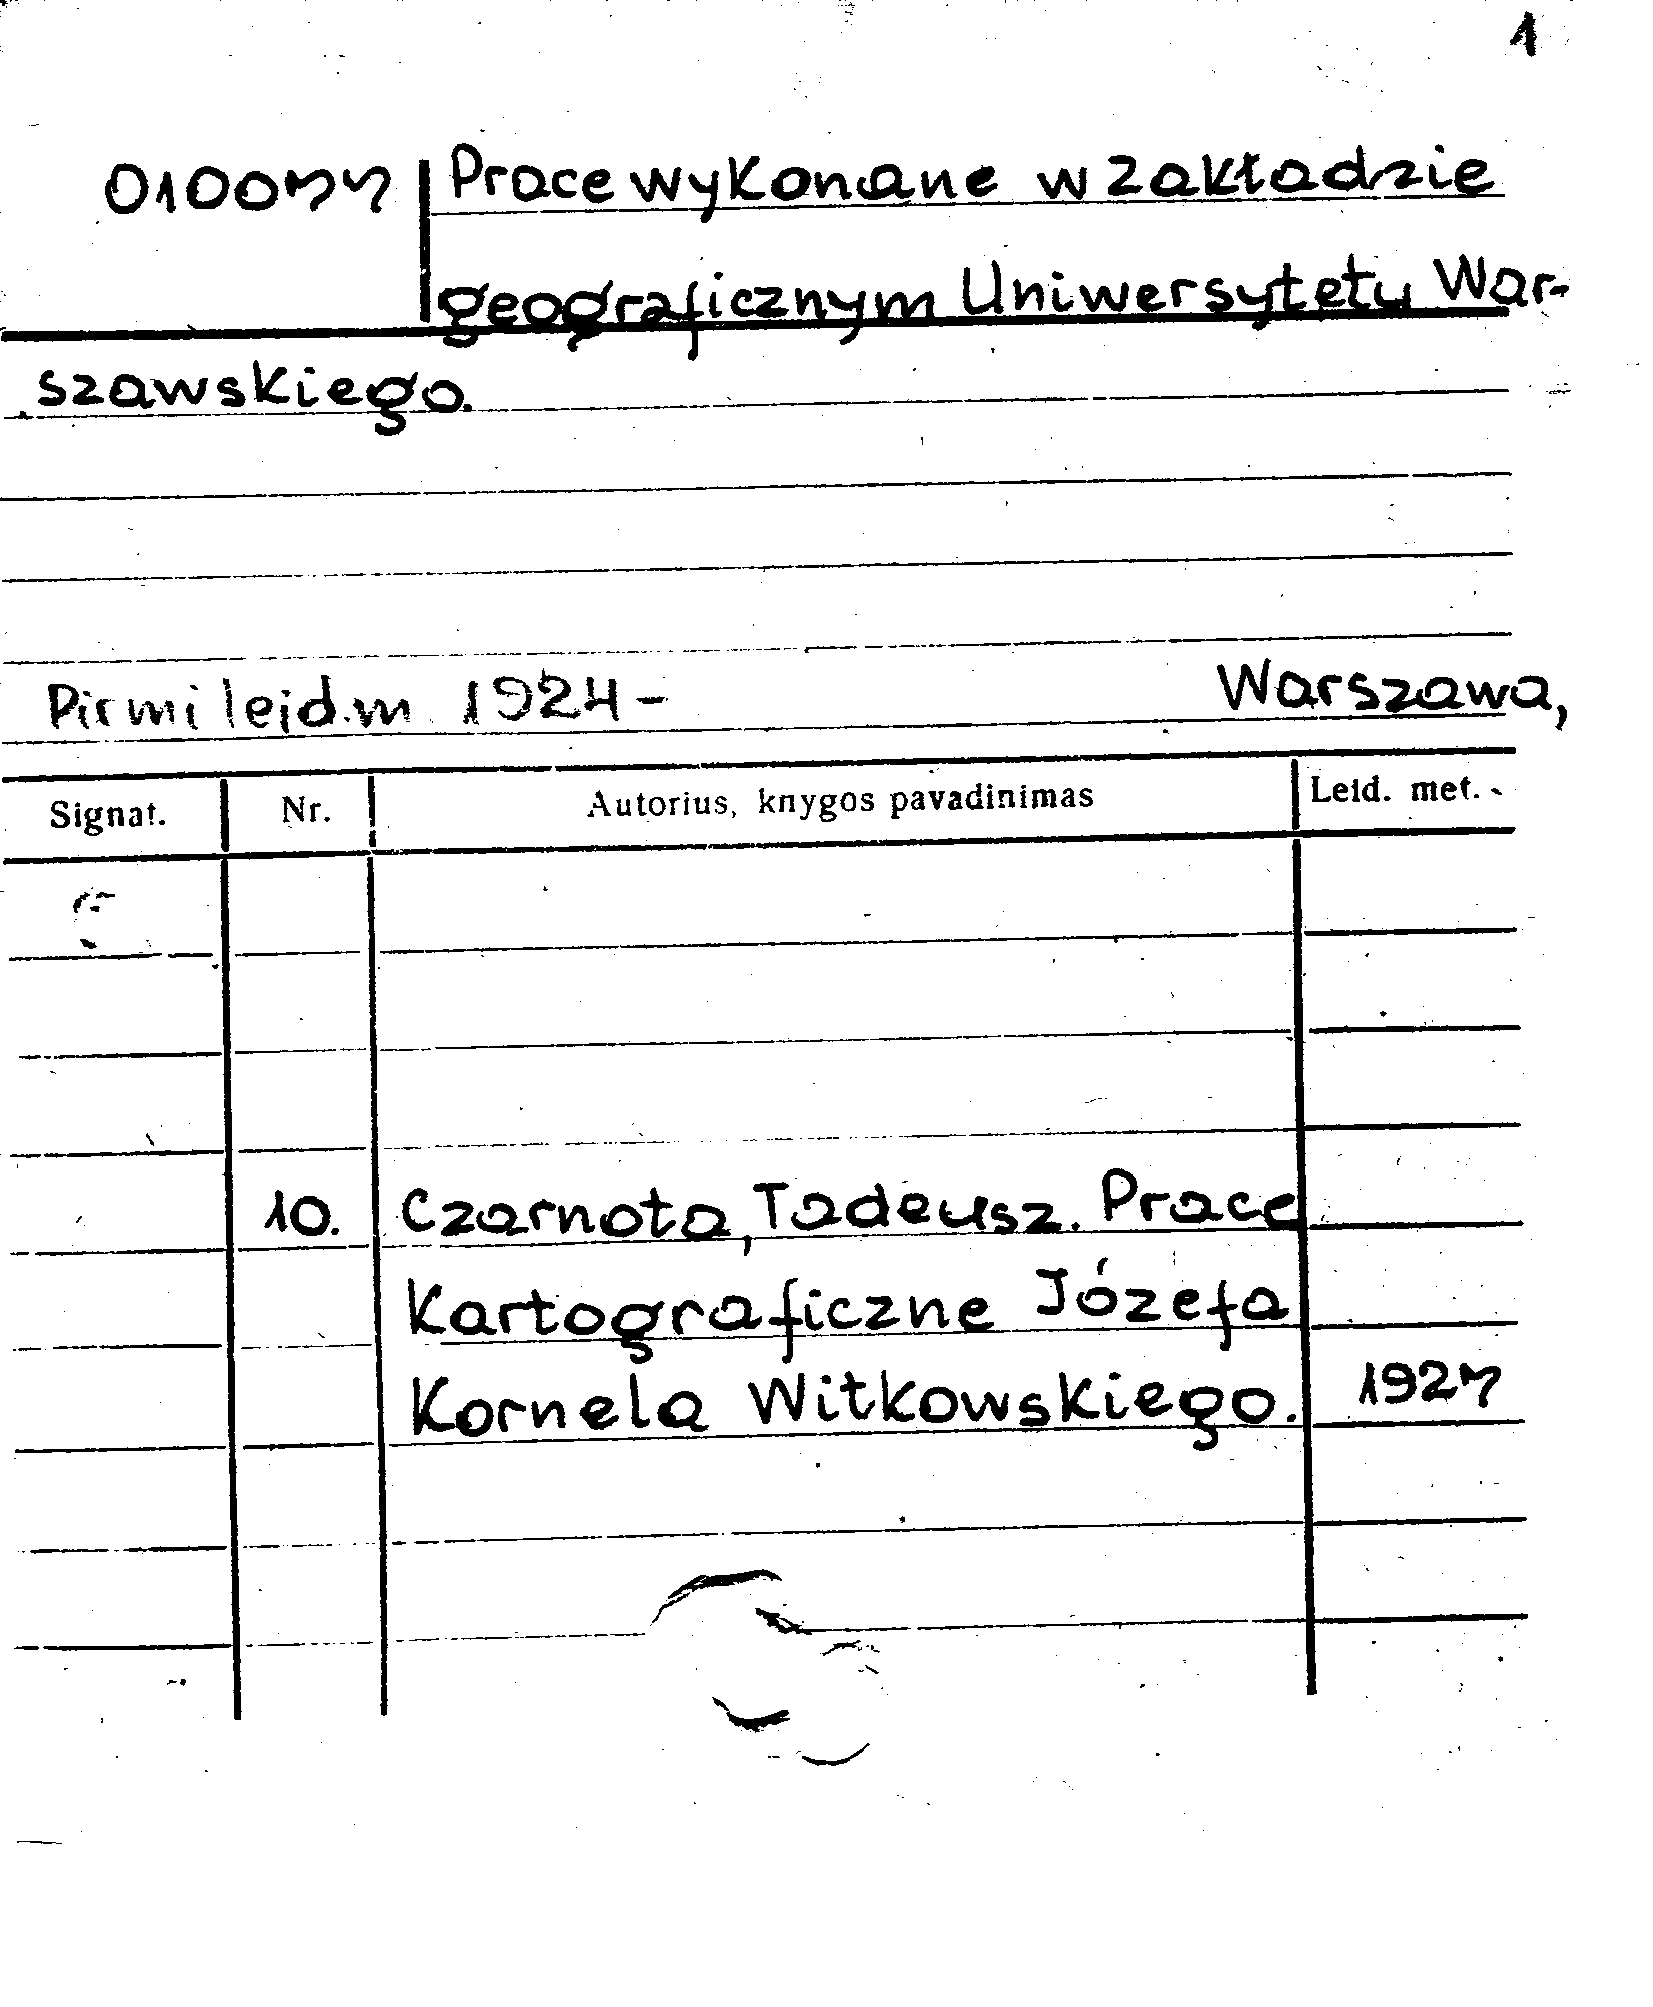 1
010077 Prace wykonane w zakładzie
geograficznym Uniwersytetu War-
szawskiego.
Pirmi leid. m 1924 - Warszawa,
Signat. Nr. Autorius, knygos pavadinimas Leid. met.
10. Czarnota, Tadeusz. Prace
Kartograficzne Józefa
Kornela Witkowskiego. 1927